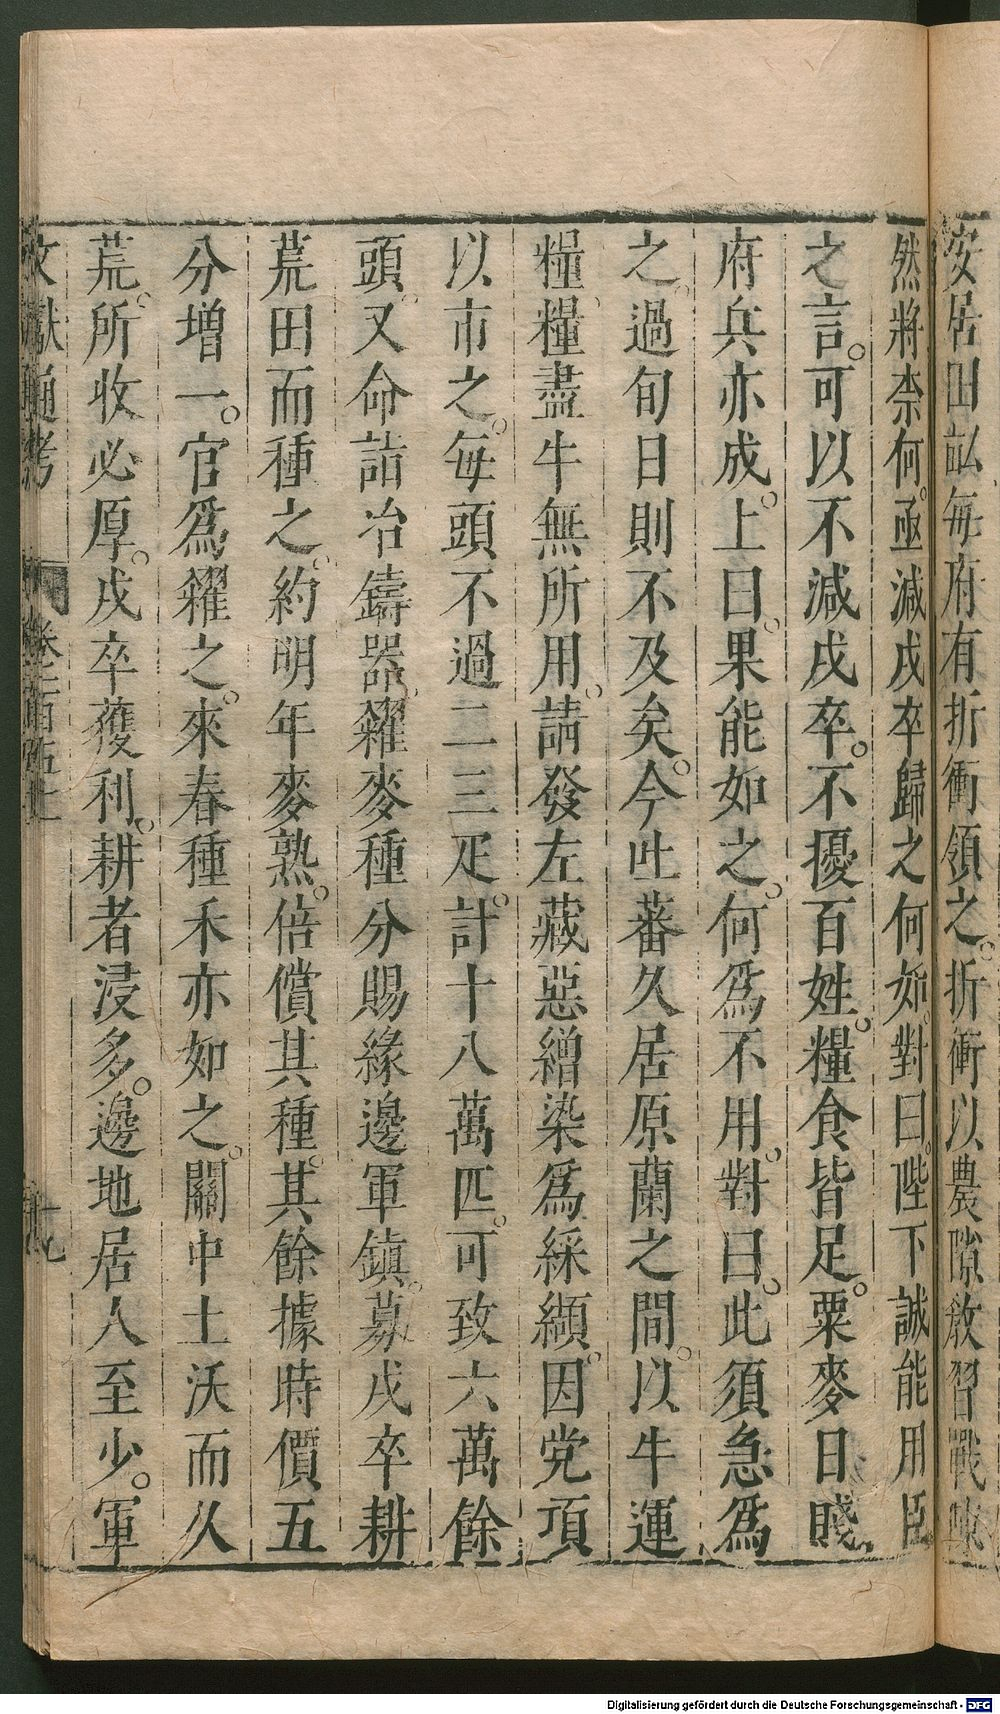 安居田畝每府有折衝領之。折衝以農隙敎習戰陳
然將柰何。亟減戍卒歸之何如。對曰。陛下誠能用臣
之言。可以不減戍卒。不擾百姓。糧食皆足。粟麥日賤。
府兵亦成。上曰。果能如之。何爲不用。對曰。此須急爲
之。過旬日則不及矣。今吐蕃久居原蘭之間。以牛運
糧。糧盡牛無所用。請發左藏惡繒染爲綵纈。因党項
以市之。每頭不過二三疋。計十八萬匹。可致六萬餘
頭。又命詣冶鑄器。糴麥種分賜緣邊軍鎮。募戍卒耕
荒田而種之。約明年麥熟。倍償其種。其餘據時價五
分增一。官爲糴之。來春種禾亦如之。關中土沃而久
荒。所收必厚。戍卒獲利。耕者浸多。邊地居人至少。軍
文獻通考
Digitalisierung gefördert durch die Deutsche Forschungsgemeinschaft - DFG